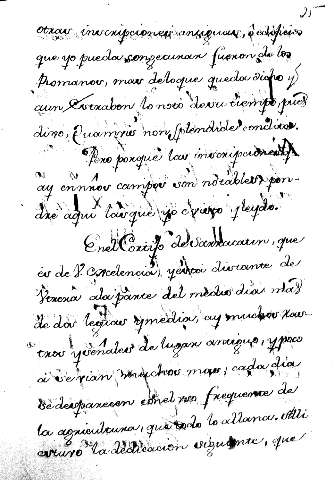 25
otras inscripciones antiguas, o edificios
que yo pueda congeturar fueron de los
Romanos, mas de lo que queda dicho y
aun Estrabon lo notó de su tiempo, pues
dixo, Quamvis non splendide condita.
Pero porque las inscripciones q
ay en nros campos son notables, pon-
dré aqui las que yo è visto y leydo.
En el Cortijo de Sarracatin, que
es de V. Excelencia, y está distante de
Utrera a la parte del medio dia mas
de dos leguas y media, ay muchos ras-
tros y señales de lugar antiguo, y poco
a se vian muchos mas; cada dia
se desparecen con el uso frequente de
la agricultura, que todo lo allana. Alli
estuvo la dedicacion siguiente, que